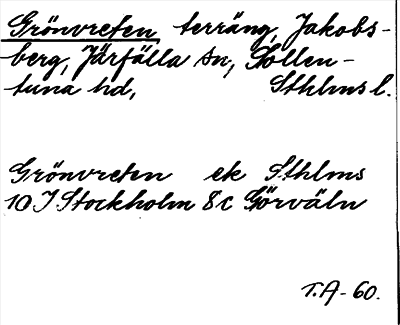 Grönvreten terräng, Jakobs-
berg, Järfälla sn, Sollen-
tuna hd, Sthlms l.
Grönvreten ek Sthlms
10 I Stockholm 8c Görväln
T.A-60.